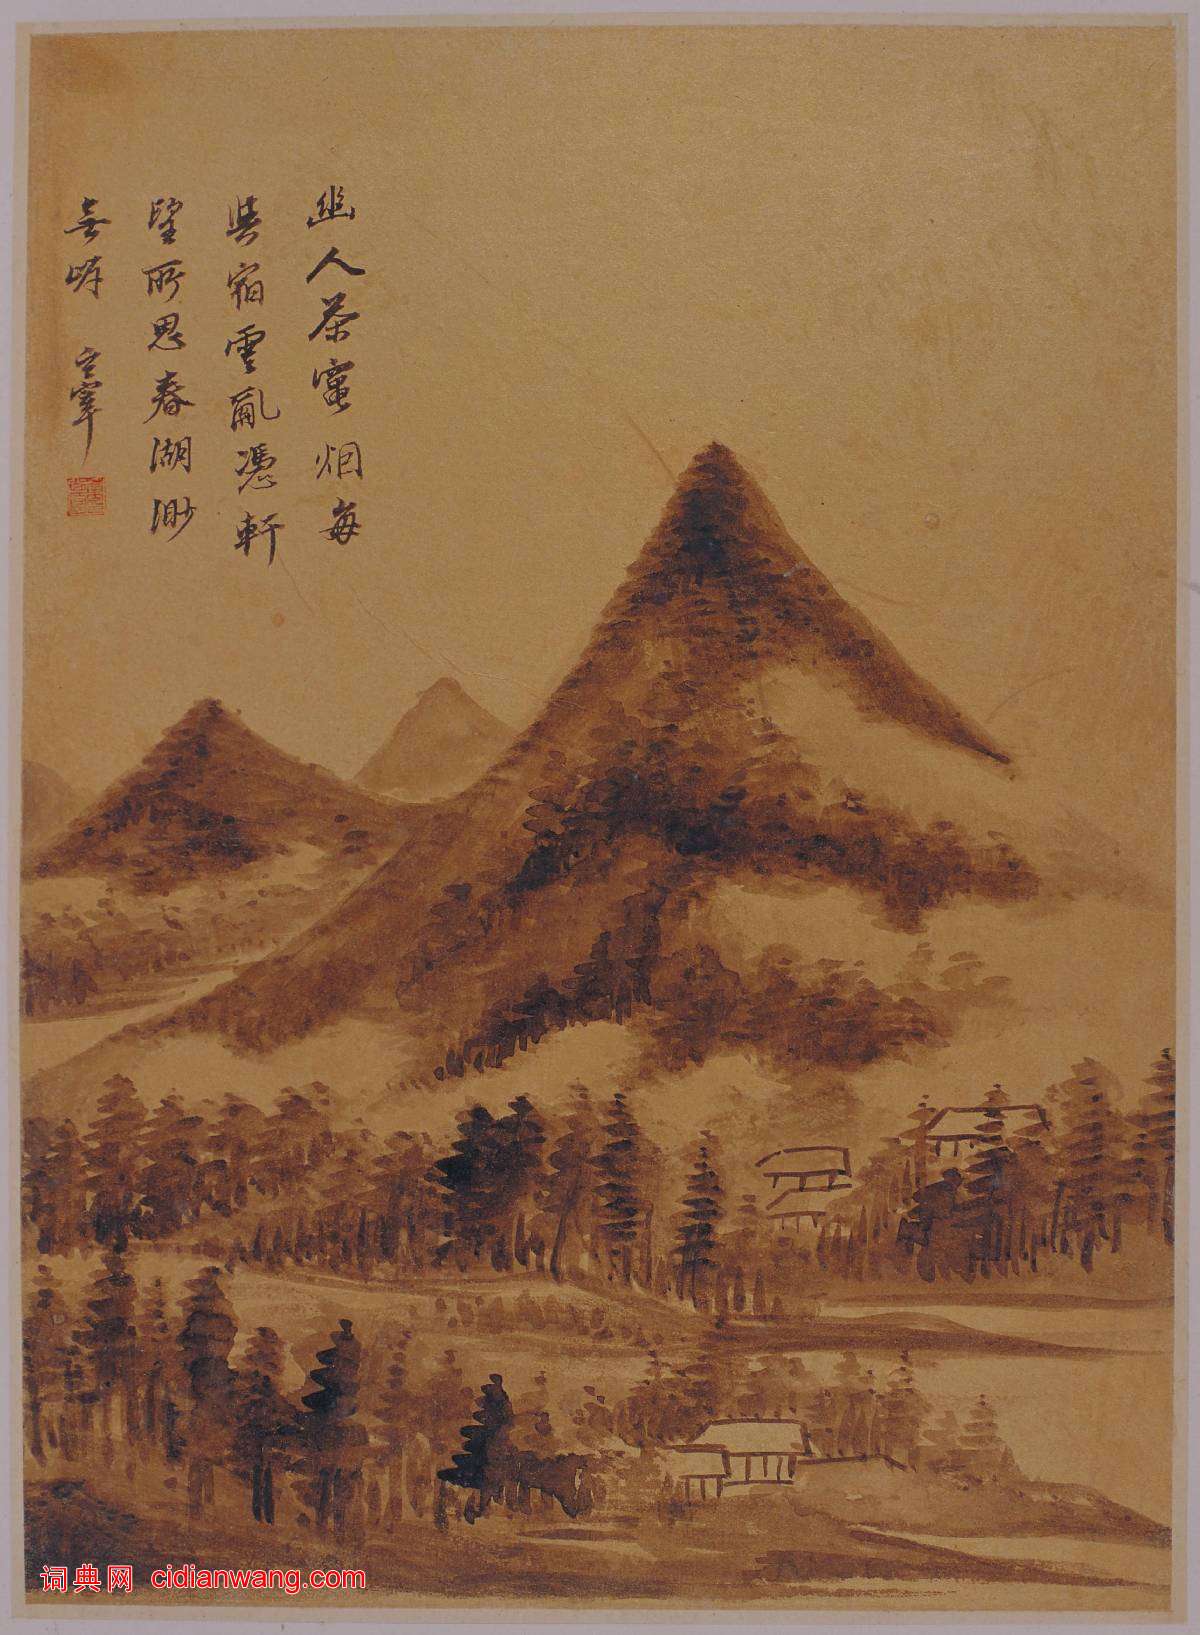 幽人茶竈烟每
與宿雲亂憑軒
望所思春湖渺
無畔 玄宰
词典网 cidianwang.com